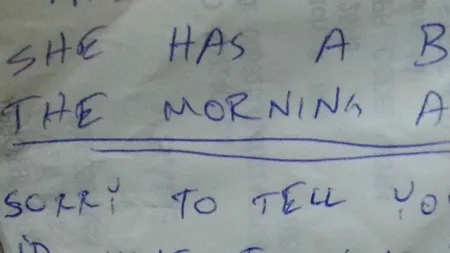 SHE HAS A B
THE MORNING A
SORRY TO TELL YO